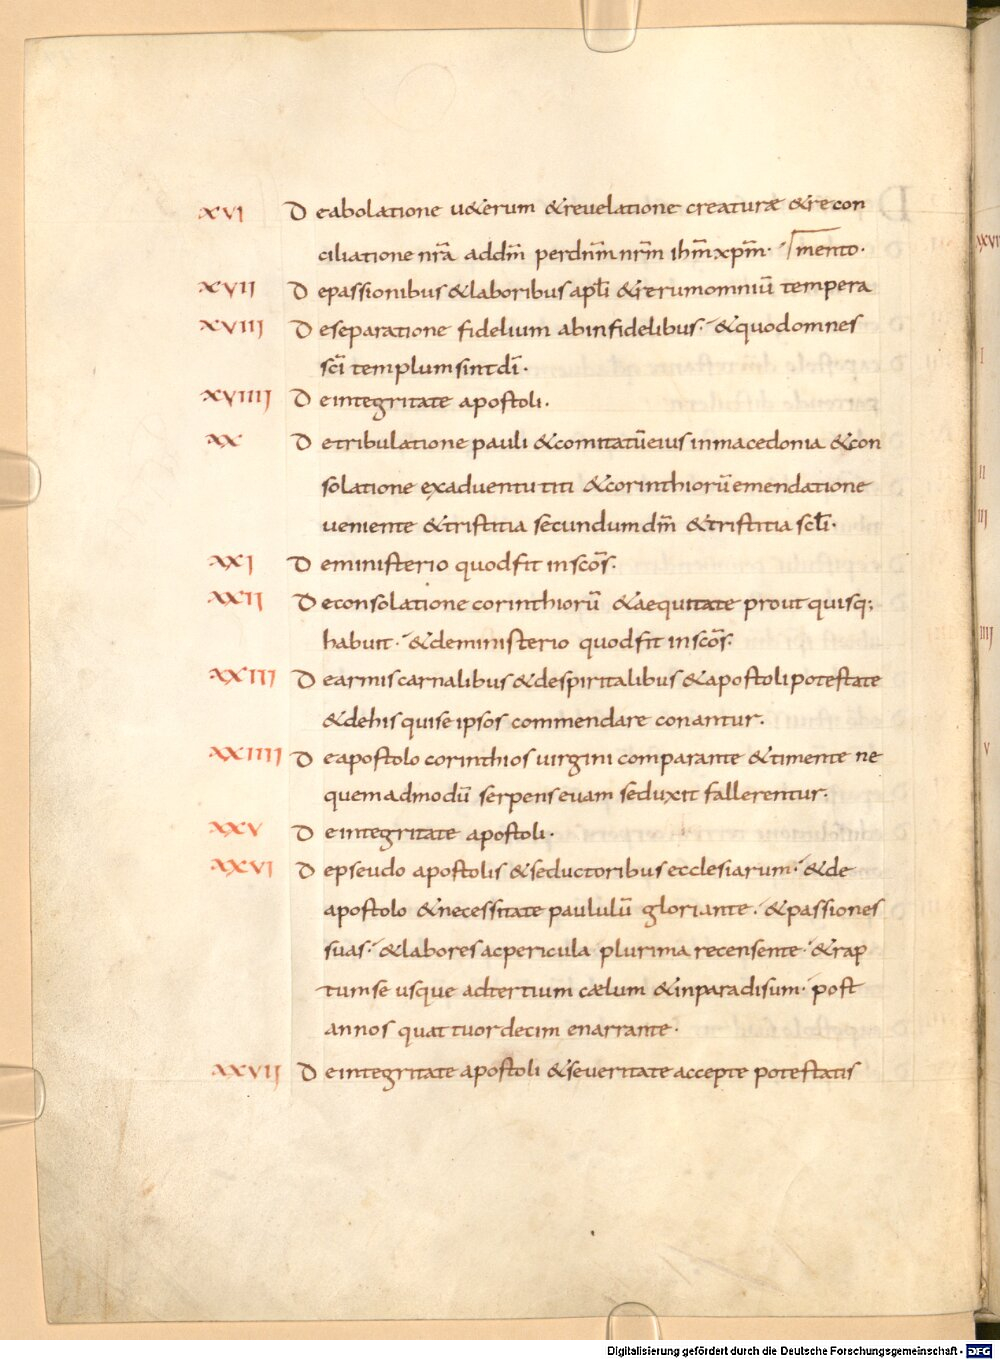 XVI De abolatione u&erum & reuelatione creaturæ & recon
ciliatione nr̄a ad dm̄ per dnm̄ nrm̄ ihm̄ xpm̄. mento.
XVII De passionibus & laboribus apl̄i & rerum omniū tempera
XVIII De separatione fidelium ab infidelibus. & quod omnes
sc̄i templum sint dī.
XVIIII De integritate apostoli.
XX De tribulatione pauli & comitatū eius in macedonia & con
solatione ex aduentu titi & corinthiorū emendatione
ueniente & tristitia secundum dm̄ & tristitia scl̄i.
XXI De ministerio quod fit in scōs.
XXII De consolatione corinthiorū & aequitate prout quisq;
habuit. & de ministerio quod fit in scōs.
XXIII De armis carnalibus & de spiritalibus & apostoli potestate
& de his qui se ipsos commendare conantur.
XXIIII De apostolo corinthios uirgini comparante & timente ne
quemadmodū serpens euam seduxit fallerentur.
XXV De integritate apostoli.
XXVI De pseudo apostolis & seductoribus ecclesiarum. & de
apostolo & necessitate paululū gloriante. & passiones
suas. & labores ac pericula plurima recensente. & rap
tum se usque ad tertium cælum & in paradisum. post
annos quattuordecim enarrante.
XXVII De integritate apostoli & seueritate accepte potestatis
XXVII
I
II
III
IIII
V
Digitalisierung gefördert durch die Deutsche Forschungsgemeinschaft - DFG